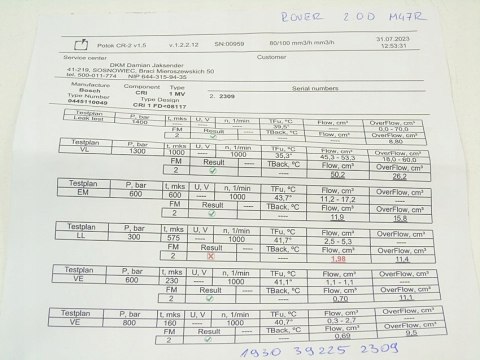 ROVER 2.0D M47R
Potok CR-2 v1.5 v.1.2.2.12 SN:00959 80/100 mm3/mm3/h 31.07.2023
12:53:31
Service center Customer
DKM Damian Jaksender
41-219, SOSNOWIEC, Braci Mieroszewskich 50
tel. 500-011-774 NIP 644-315-94-35
Manufacture Component Type Serial numbers
Bosch CRI 1 MV 2. 2309
Type Number Type Design
0445110049 CRI 1 FD<08117
Testplan P, bar t, mks U, V n, 1/min TFu, ºC Flow, cm³ OverFlow, cm³
Leak test 1400 ---- ---- ---- 39,5° ---- 0,0 - 70,0
FM Result TBack, ºC Flow, cm³ OverFlow, cm³
2 ---- ---- 8,80
Testplan P, bar t, mks U, V n, 1/min TFu, ºC Flow, cm³ OverFlow, cm³
VL 1300 1000 ---- 1000 35,3° 45,3 - 53,3 18,0 - 60,0
FM Result TBack, ºC Flow, cm³ OverFlow, cm³
2 ---- 50,2 26,2
Testplan P, bar t, mks U, V n, 1/min TFu, ºC Flow, cm³ OverFlow, cm³
EM 600 600 ---- 1000 43,7° 11,2 - 17,2 ----
FM Result TBack, ºC Flow, cm³ OverFlow, cm³
2 ---- 11,9 15,8
Testplan P, bar t, mks U, V n, 1/min TFu, ºC Flow, cm³ OverFlow, cm³
LL 300 575 ---- 1000 41,7° 2,5 - 5,3 ----
FM Result TBack, ºC Flow, cm³ OverFlow, cm³
2 ---- 1,98 11,4
Testplan P, bar t, mks U, V n, 1/min TFu, ºC Flow, cm³ OverFlow, cm³
VE 600 230 ---- 1000 41,1° 1,1 - 1,1 ----
FM Result TBack, ºC Flow, cm³ OverFlow, cm³
2 ---- 0,70 11,1
Testplan P, bar t, mks U, V n, 1/min TFu, ºC Flow, cm³ OverFlow, cm³
VE 800 160 ---- 1000 40,0° 0,3 - 2,7 ----
FM Result TBack, ºC Flow, cm³ OverFlow, cm³
2 ---- 0,69 9,5
1930 39225 2309